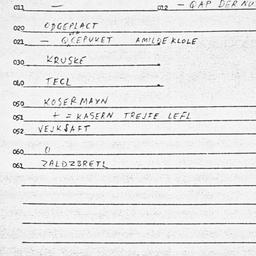 011 — 012 — GAP DER NU
020 ODGEPLACT
021 — AMILDE KLOLE
030 KRUSKE
040 TECL
050 KOSERMAYN
051 + = KASERN TREJTE LEFL
052 VEJKSAFT
060 O
061 ZALDZBRETL